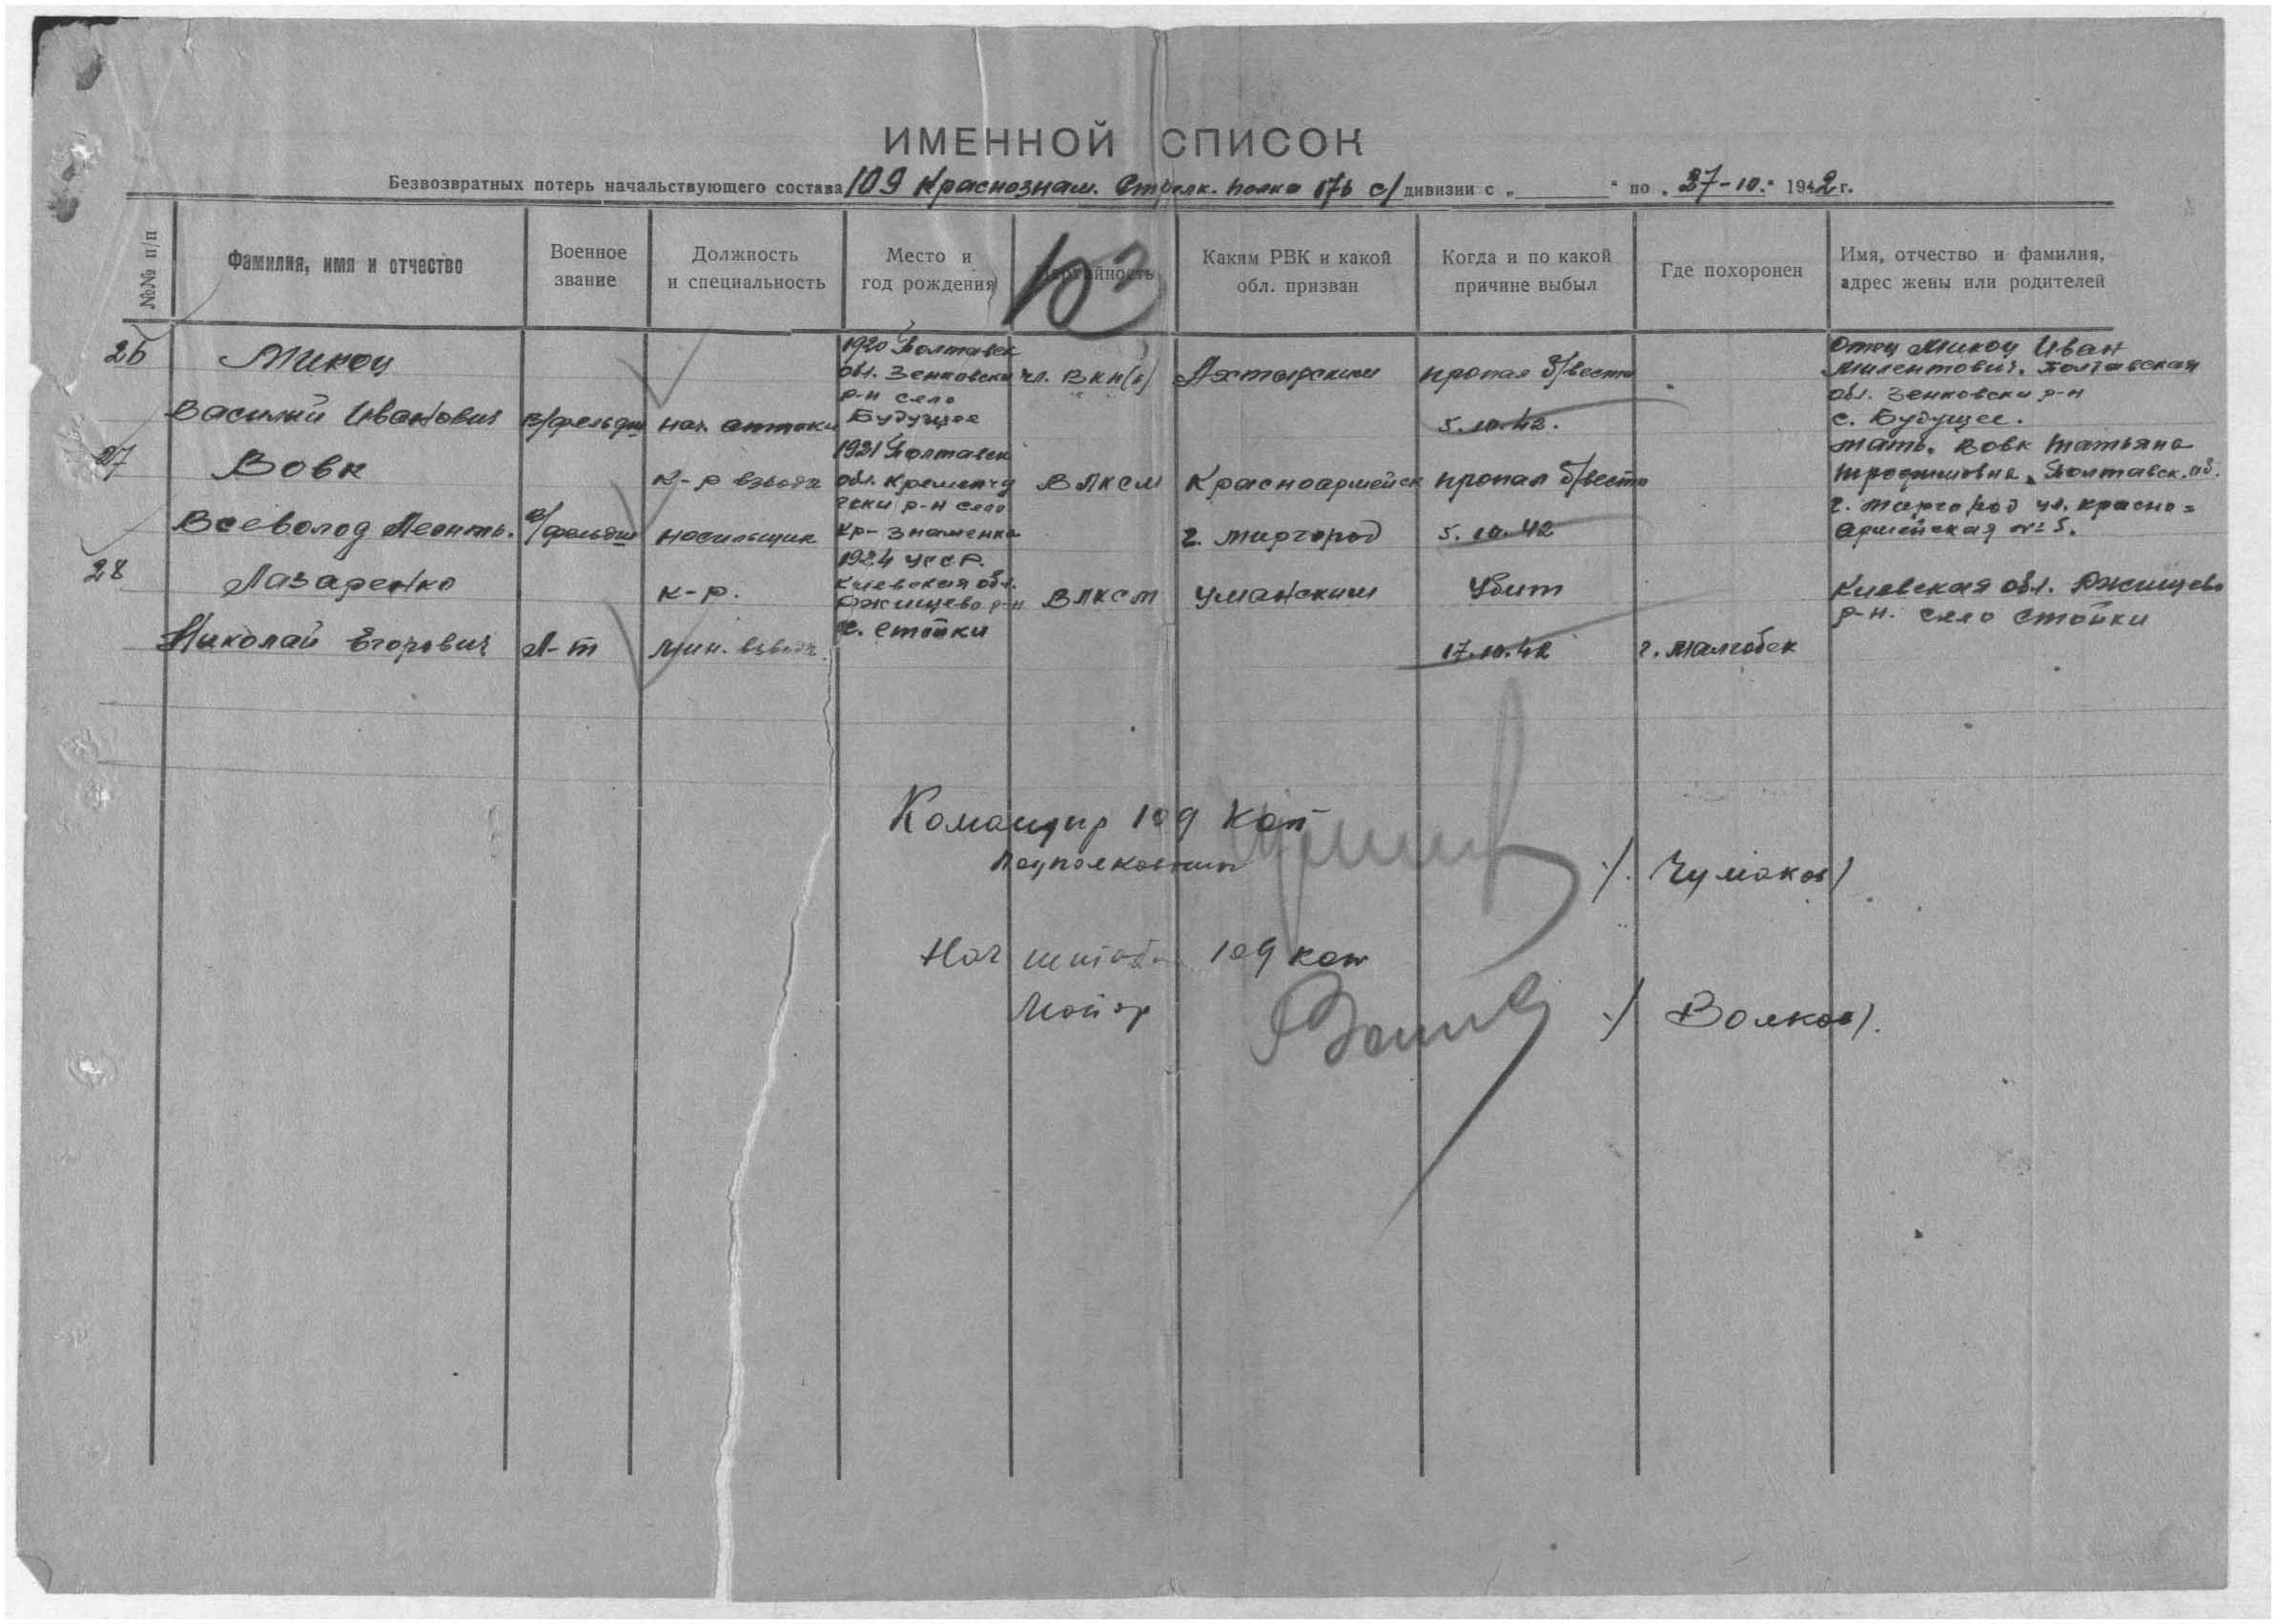 ИМЕННОЙ СПИСОК
Безвозвратных потерь начальствующего состава 109 Краснознам. Стрелк. полка 176 с/ дивизии с „ “ по „27-10.“ 1942 г.
№№ п/п
Фамилия, имя и отчество
Военное звание
Должность и специальность
Место и год рождения
Партийность
Каким РВК и какой обл. призван
Когда и по какой причине выбыл
Где похоронен
Имя, отчество и фамилия, адрес жены или родителей
26
Микоц
Василий Иванович
В/фельдш
нач. аптеки
1920 Полтавск
обл. Зенковски
р-н село
Будущее
чл. ВКП(б)
Ахтырским
пропал б/вести
5.10.42.
Отец Микоц Иван
Милентович. Полтавская
обл. Зенковски р-н
с. Будущее.
27
Вовк
Всеволод Леонть.
в/фельдш
к-р взвода
носильщик
1921 Полтавск
обл. Кременчу
гски р-н село
Кр-Знаменка
ВЛКСМ
Красноармейск
г. Миргород
пропал б/вести
5.10.42
мать. Вовк Татьяна
Трофимовна. Полтавск. об.
г. Миргород ул. Красно=
армейская № 5.
28
Лазаренко
Николай Егорович
Л-т
к-р.
мин. взвода
1924 УССР.
Киевская обл.
Ржищево р-н
с. Стойки
ВЛКСМ
Уманским
Убит
17.10.42
г. Малгобек
Киевская обл. Ржищево
р-н. село Стойки
Командир 109 Ксп
Подполковник /Чумаков/
Нач штаба 109 ксп
Майор /Волков/.